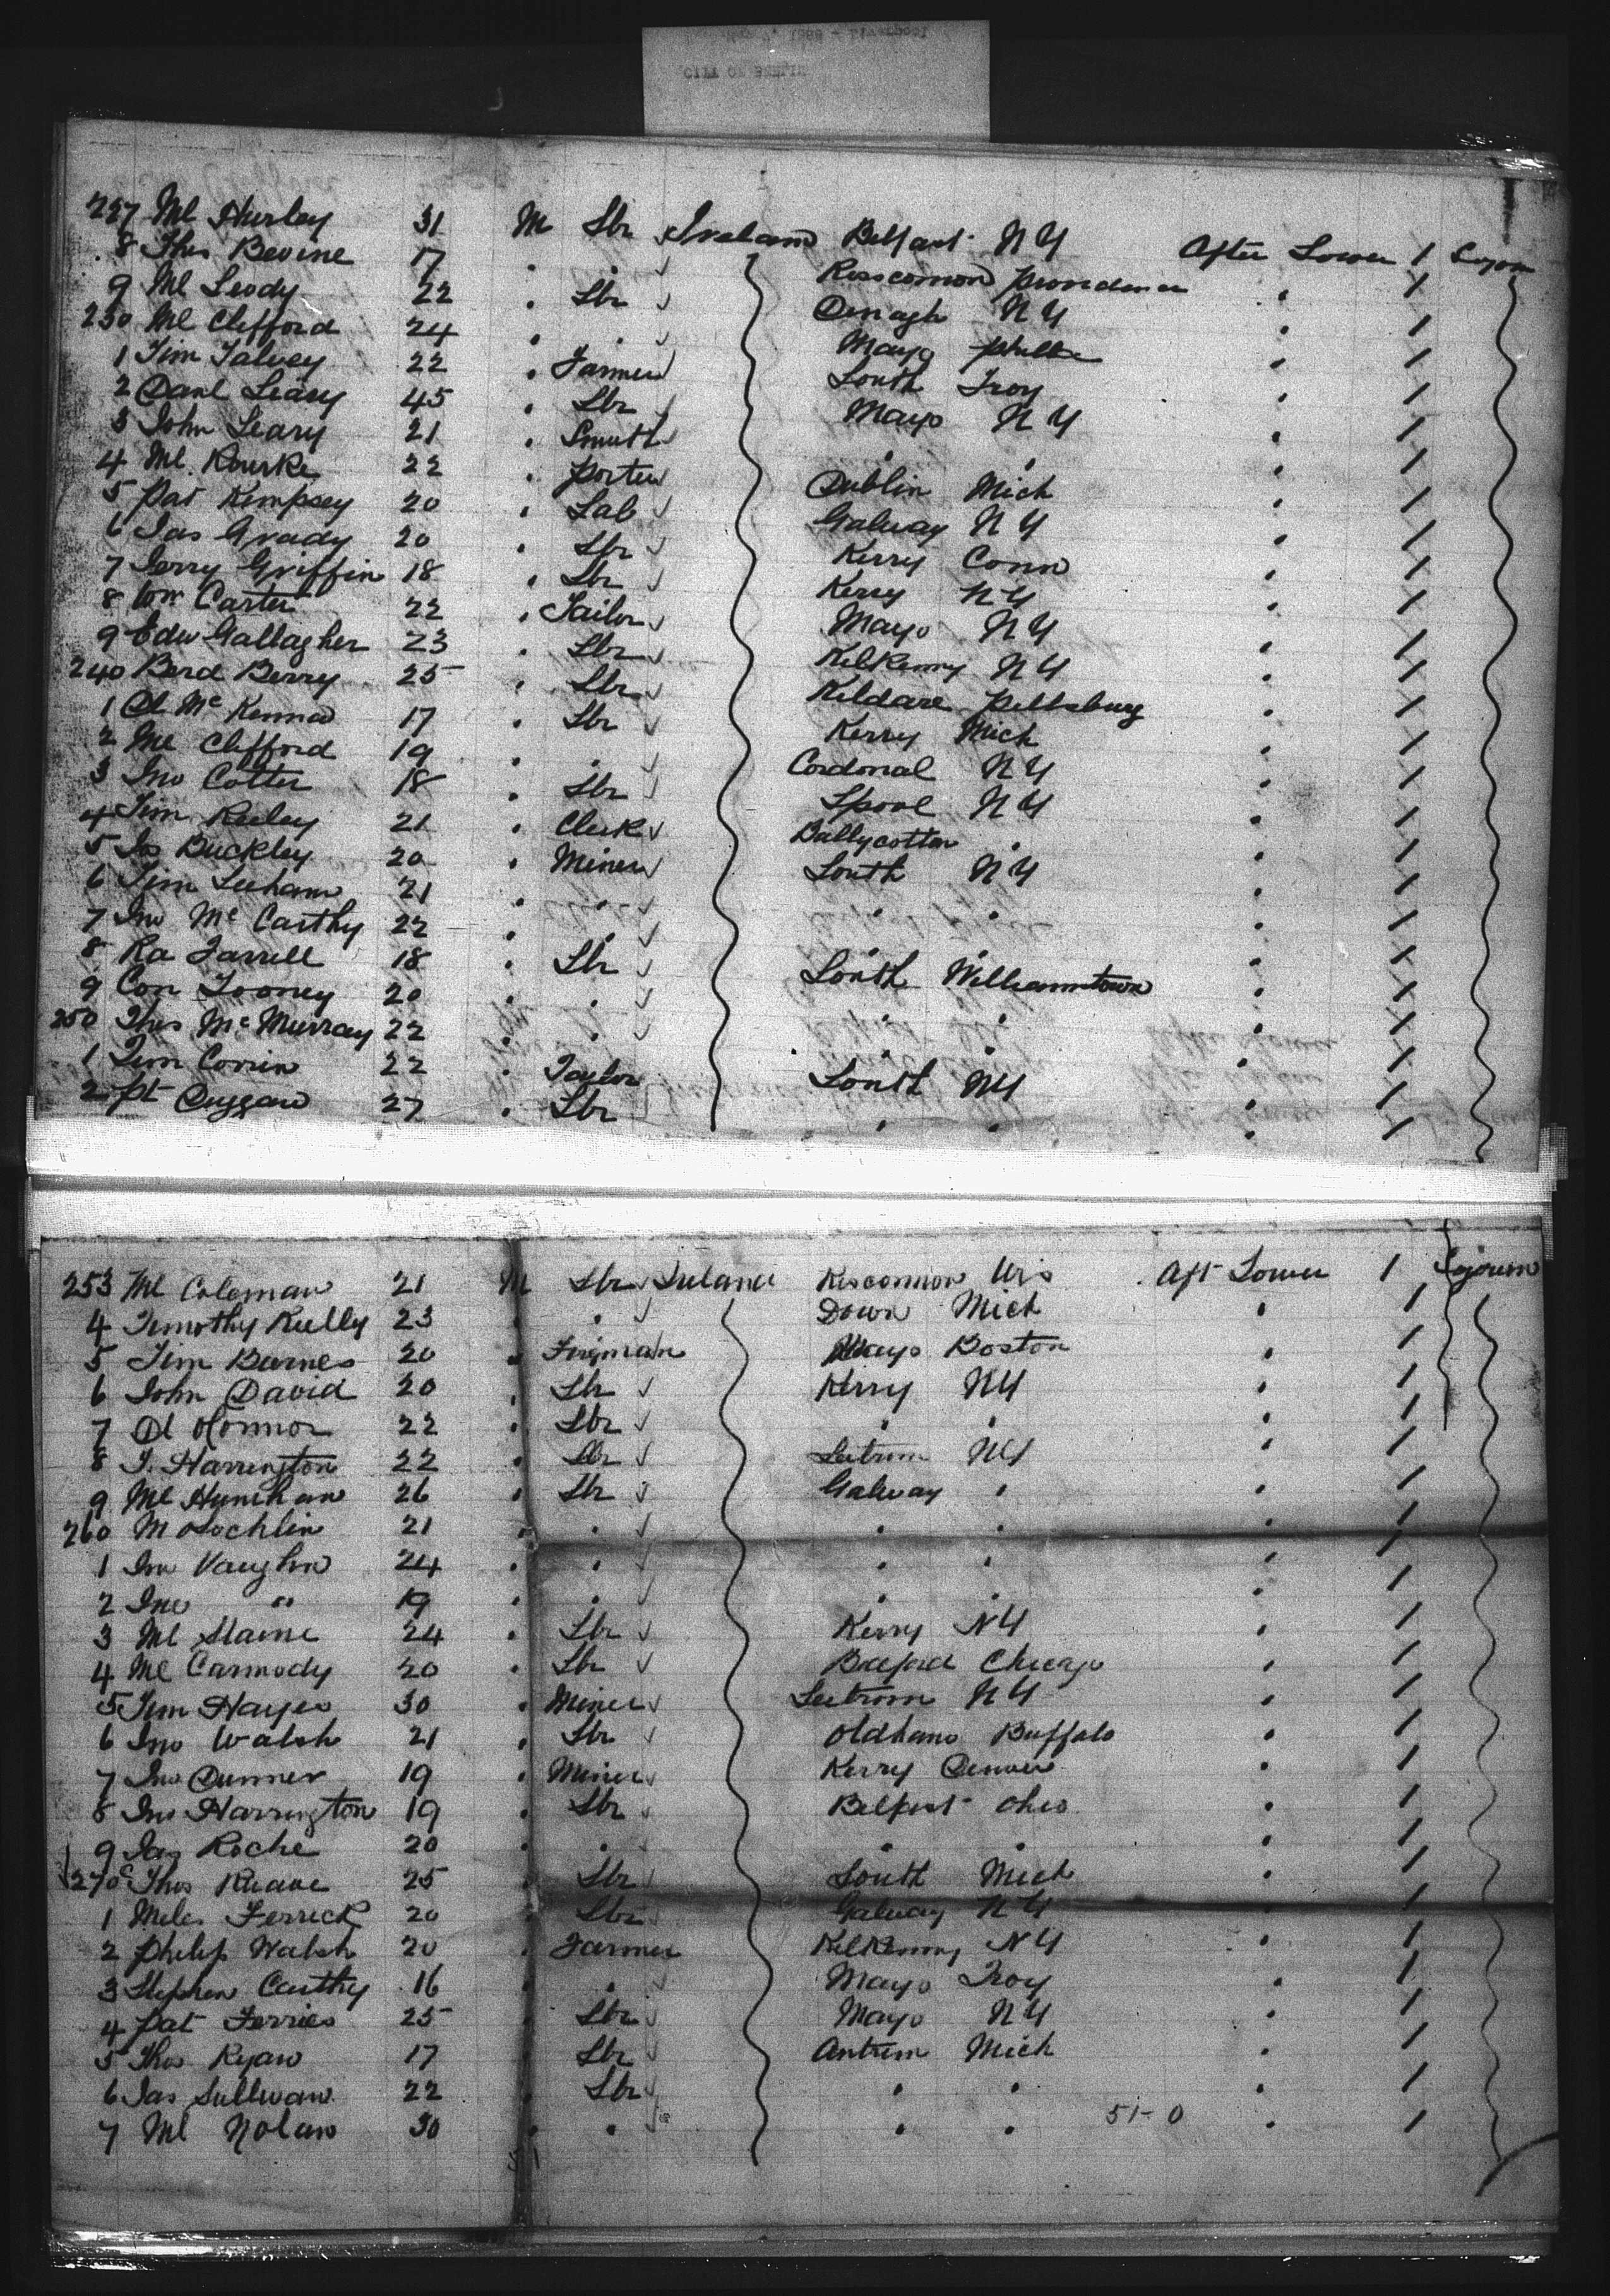 227 Ml Hurley 31 M Lbr Ireland Belfast N Y After Lower 1 Sojourn
8 Thos Bevine 17 . . Rosscomon Providence . 1
9 Ml Leody 22 . Lbr N Y . 1
230 Ml Clifford 24 . . Mayo Phila . 1
1 Tim Talvey 22 . Farmer Louth Troy . 1
2 Danl Leary 45 . Lbr Mayo N Y . 1
3 John Leary 21 . Smith . . . 1
4 Ml. Rourke 22 . Porter Dublin Mich . 1
5 Pat Kempsey 20 . Lab Galway N Y . 1
6 Jas Grady 20 . Lbr Kerry Conn . 1
7 Jerry Griffin 18 . Lbr Kerry N Y . 1
8 Wm Carter 22 . Tailor Mayo N Y . 1
9 Edw Gallagher 23 . Lbr Kilkenny N Y . 1
240 Berd Berry 25 . Lbr Kildare Pittsburg . 1
1 Mc Kenna 17 . Lbr Kerry Mich . 1
2 Ml Clifford 19 . . Cordonal N Y . 1
3 Jno Cotter 18 . Lbr Lpool N Y . 1
4 Tim Keeley 21 . Clerk Ballycotton . . 1
5 Jas Buckley 20 . Miner Louth N Y . 1
6 Tim Leehane 21 . . . . . 1
7 Jno Mc Carthy 22 . . . . . 1
8 Ra Farrell 18 . Lbr Louth Williamstown . 1
9 Con Tooney 20 . . . . . 1
250 Thos Mc Murray 22 . . . . . 1
1 Tim Corrin 22 . Taylor Louth N Y . 1
2 Pt Duggan 27 . Lbr . . . 1
253 Ml Coleman 21 M Lbr Ireland Roscommon Wis Aft Lower 1 Sojourn
4 Timothy Kelly 23 . . Down Mich . 1
5 Jim Barnes 20 . Mayo Boston . 1
6 John David 20 . Lbr Kerry N Y . 1
7 Dl OConnor 22 . Lbr . . . 1
8 J. Harrington 22 . Lbr Leitrim N Y . 1
9 Ml Hunihan 26 . Lbr Galway . . 1
260 M oLochlin 21 . . . . . 1
1 Jno Vaughn 24 . . . . . 1
2 Jno " 19 . . . . . 1
3 Ml Slaine 24 . Lbr Kerry N Y . 1
4 Ml Carmody 20 . Lbr Chicago . 1
5 Tim Hayes 30 . Miner Leitrim N Y . 1
6 Jno Walsh 21 . Lbr Oldham Buffalo . 1
7 Jno Dunner 19 . Miner Kerry Denver . 1
8 Jno Harrington 19 . Lbr Belfast Ohio . 1
9 Jas Roche 20 . . . . . 1
270 Thos Ruane 25 . Lbr Louth Mich . 1
1 Miles Ferrick 20 . Lbr Galway N Y . 1
2 Philip Walsh 20 . Farmer Kilkenny N Y . 1
3 Stephen Carthy 16 . . Mayo Troy . 1
4 Pat Ferries 25 . Lbr Mayo N Y . 1
5 Thos Ryan 17 . Lbr Antrim Mich . 1
6 Jas Sullivan 22 . Lbr . . . 1
7 Ml Nolan 30 . . . . 51-0 . 1